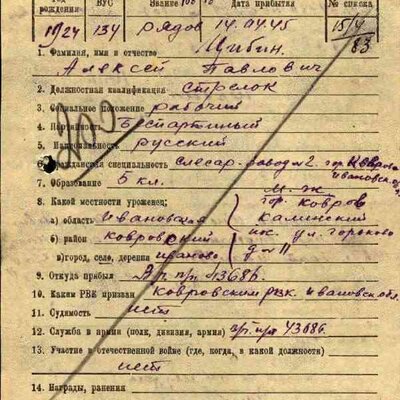 рождения ВУС Звание Дата прибытия № списка
1924 134 рядов 14.04.45 15/4
83
1. Фамилия, имя и отчество Шибин
Алексей Павлович
2. Должностная квалификация стрелок
3. Социальное положение рабочий
4. Партийность Беспартийный
5. Национальность русский
6. Гражданская специальность слесар. завод №2 гор. Ковров
Ивановск. о
7. Образование 5 кл. М.-Ж
8. Какой местности уроженец: гор. Ковров
а) область Ивановская
б) район Ковровский ул. Горького
в) город, село, деревня Иваново д. 11
9. Откуда прибыл Ап п/п 43686
10. Каким РВК призван Ковровским РВК. Ивановской обл.
11. Судимость нет
12. Служба в армии (полк, дивизия, армия) п/п 43686
13. Участие в отечественной войне (где, когда, в какой должности)
нет
14. Награды, ранения